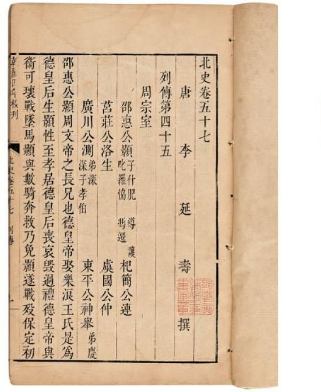 北史卷五十七
唐 李 延 壽 撰
列傳第四十五
周宗室
邵惠公顥 子什肥 導 護 叱羅協 馮遷 杞簡公連
莒莊公洛生 虞國公仲
廣川公測 弟深 深子孝伯 東平公神舉 弟慶
邵惠公顥周文帝之長兄也德皇帝娶樂浪王氏是為
德皇后生顥性至孝居德皇后喪哀毀過禮德皇帝與
衞可瓌戰墜馬顥與數騎奔救乃免顥遂戰歿保定初
北史卷五十七 列傳